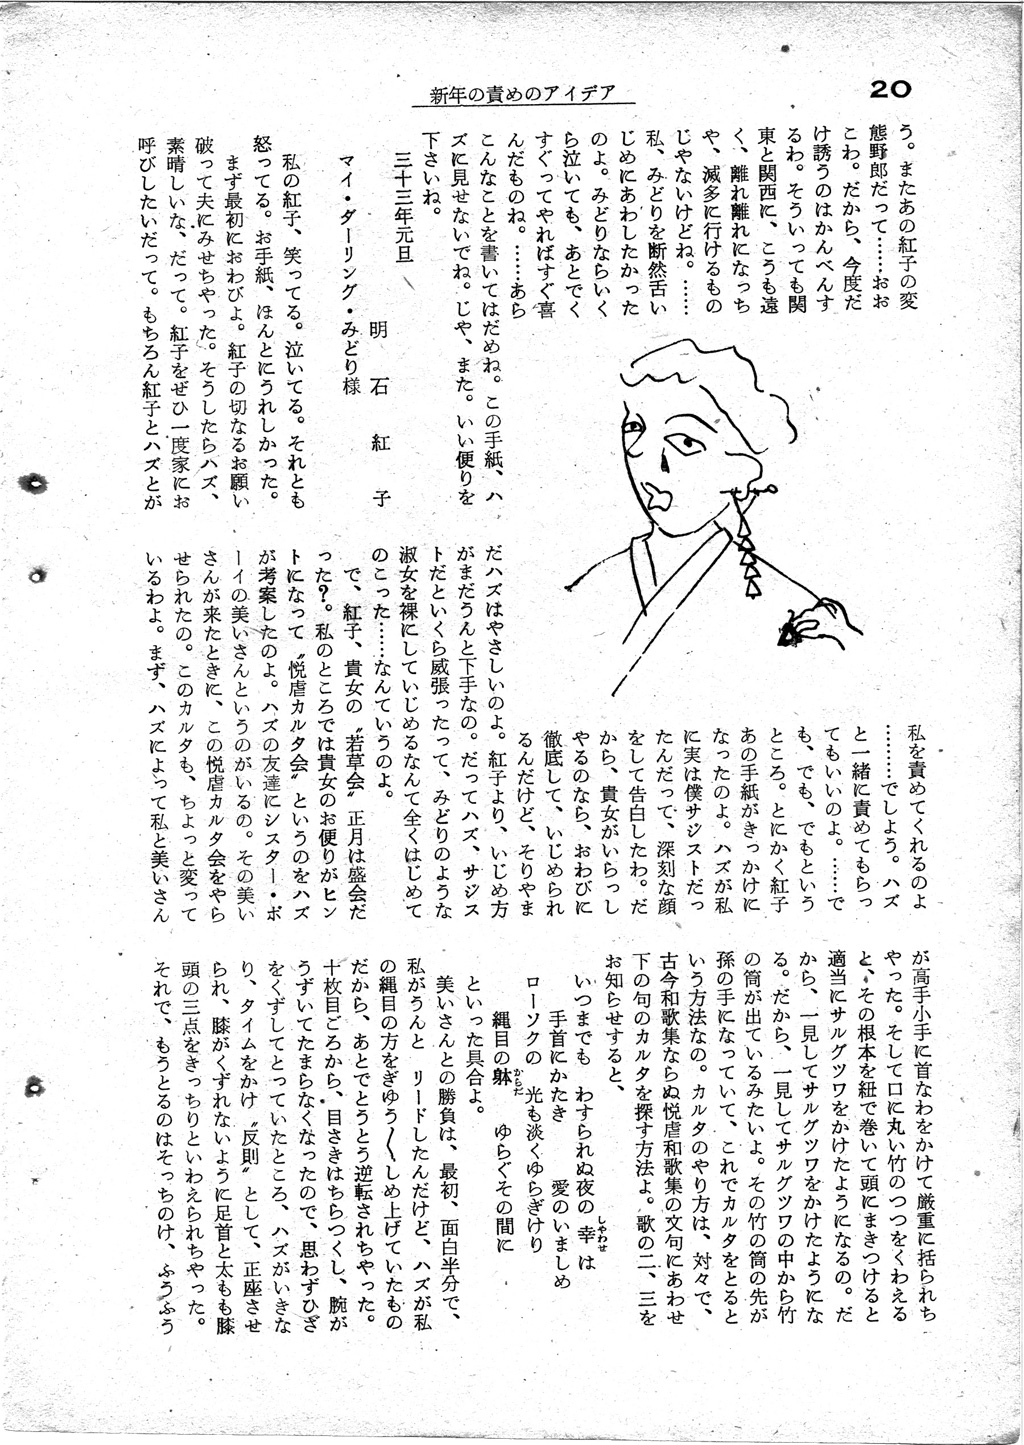 20
新年の責めのアイデア
う。またあの紅子の変
態野郎だって……おお
こわ。だから、今度だ
け誘うのはかんべんす
るわ。そういっても関
東と関西に、こうも遠
く、離れ離れになっち
や、滅多に行けるもの
じゃないけどね。……
私、みどりを断然舌い
じめにあわしたかった
のよ。みどりならいく
ら泣いても、あとでく
すぐってやればすぐ喜
んだものね。……あら
こんなことを書いてはだめね。この手紙、ハ
ズに見せないでね。じや、また。いい便りを
下さいね。
三十三年元旦
明石紅子
マイ・ダーリング・みどり様
私の紅子、笑ってる。泣いてる。それとも
怒ってる。お手紙、ほんとにうれしかった。
まず最初におわびよ。紅子の切なるお願い
破って夫にみせちやった。そうしたらハズ、
素晴しいな、だって。紅子をぜひ一度家にお
呼びしたいだって。もちろん紅子とハズとが
私を責めてくれるのよ
………でしよう。ハズ
と一緒に責めてもらっ
てもいいのよ。……で
も、でも、でもという
ところ。とにかく紅子
あの手紙がきっかけに
なったのよ。ハズが私
に実は僕サジストだっ
たんだって、深刻な顔
をして告白したわ。だ
から、貴女がいらっし
やるのなら、おわびに
徹底して、いじめられ
るんだけど、そりやま
だハズはやさしいのよ。紅子より、いじめ方
がまだうんと下手なの。だってハズ、サジス
トだといくら威張ったって、みどりのような
淑女を裸にしていじめるなんて全くはじめて
のこった……なんていうのよ。
で、紅子、貴女の〝若草会〟正月は盛会だ
った？。私のところでは貴女のお便りがヒン
トになって〝悦虐カルタ会〟というのをハズ
が考案したのよ。ハズの友達にシスター・ボ
ーイの美いさんというのがいるの。その美い
さんが来たときに、この悦虐カルタ会をやら
せられたの。このカルタも、ちよっと変って
いるわよ。まず、ハズによって私と美いさん
が高手小手に首なわをかけて厳重に括られち
やった。そして口に丸い竹のつつをくわえる
と、その根本を紐で巻いて頭にまきつけると
適当にサルグツワをかけたようになるの。だ
から、一見してサルグツワをかけたようにな
る。だから、一見してサルグツワの中から竹
の筒が出ているみたいよ。その竹の筒の先が
孫の手になっていて、これでカルタをとると
いう方法なの。カルタのやり方は、対々で、
古今和歌集ならぬ悦虐和歌集の文句にあわせ
下の句のカルタを探す方法よ。歌の二、三を
お知らせすると、
いつまでも　わすられぬ夜の　幸しやわせは
手首にかたき　愛のいましめ
ローソクの　光も淡くゆらぎけり
縄目の躰からだ　ゆらぐその間に
といった具合よ。
美いさんとの勝負は、最初、面白半分で、
私がうんと　リードしたんだけど、ハズが私
の縄目の方をぎゆう〱しめ上げていたもの
だから、あとでとうとう逆転されちやった。
十枚目ごろから、目さきはちらつくし、腕が
うずいてたまらなくなったので、思わずひざ
をくずしてとっていたところ、ハズがいきな
り、タイムをかけ〝反則〟として、正座させ
られ、膝がくずれないように足首と太もも膝
頭の三点をきっちりといわえられちやった。
それで、もうとるのはそっちのけ、ふうふう